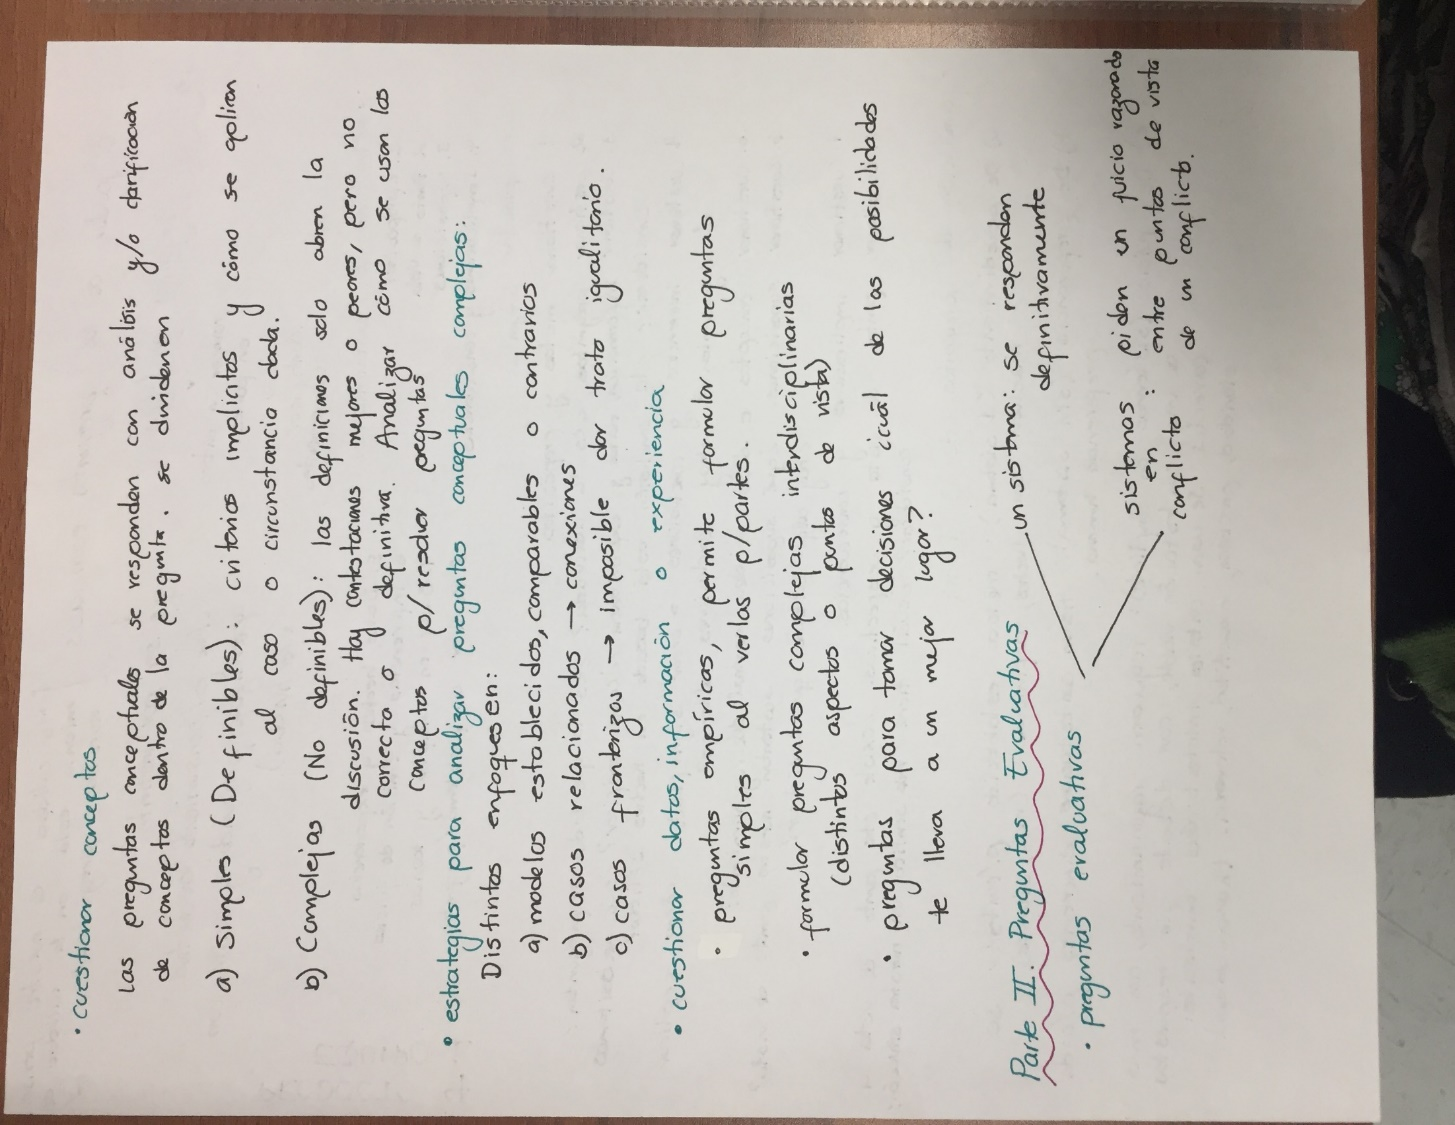 • cuestionar conceptos
Las preguntas conceptuales se responden con análisis y/o clarificación
de conceptos dentro de la pregunta. se dividen en
a) Simples (Definibles): criterios implícitos y cómo se aplican
al caso o circunstancia dada.
b) Complejas (No definibles): las definiciones solo abren la
discusión. Hay contestaciones mejores o peores, pero no
correcta o definitiva. Analizar cómo se usan los
conceptos p/ resolver preguntas
• estrategias para analizar preguntas conceptuales complejas:
Distintos enfoques en:
a) modelos establecidos, comparables o contrarios
b) casos relacionados → conexiones
c) casos fronterizos → imposible dar trato igualitario.
• cuestionar datos, información o experiencia
• preguntas empíricas, permite formular preguntas
simples al verlas p/partes.
• formular preguntas complejas interdisciplinarias
(distintos aspectos o puntos de vista)
• preguntas para tomar decisiones ¿cuál de las posibilidades
te lleva a un mejor lugar?
Parte II. Preguntas Evaluativas
• preguntas evaluativas
un sistema: se responden
definitivamente
sistemas en conflicto : piden un juicio razonado
entre puntos de vista
de un conflicto.